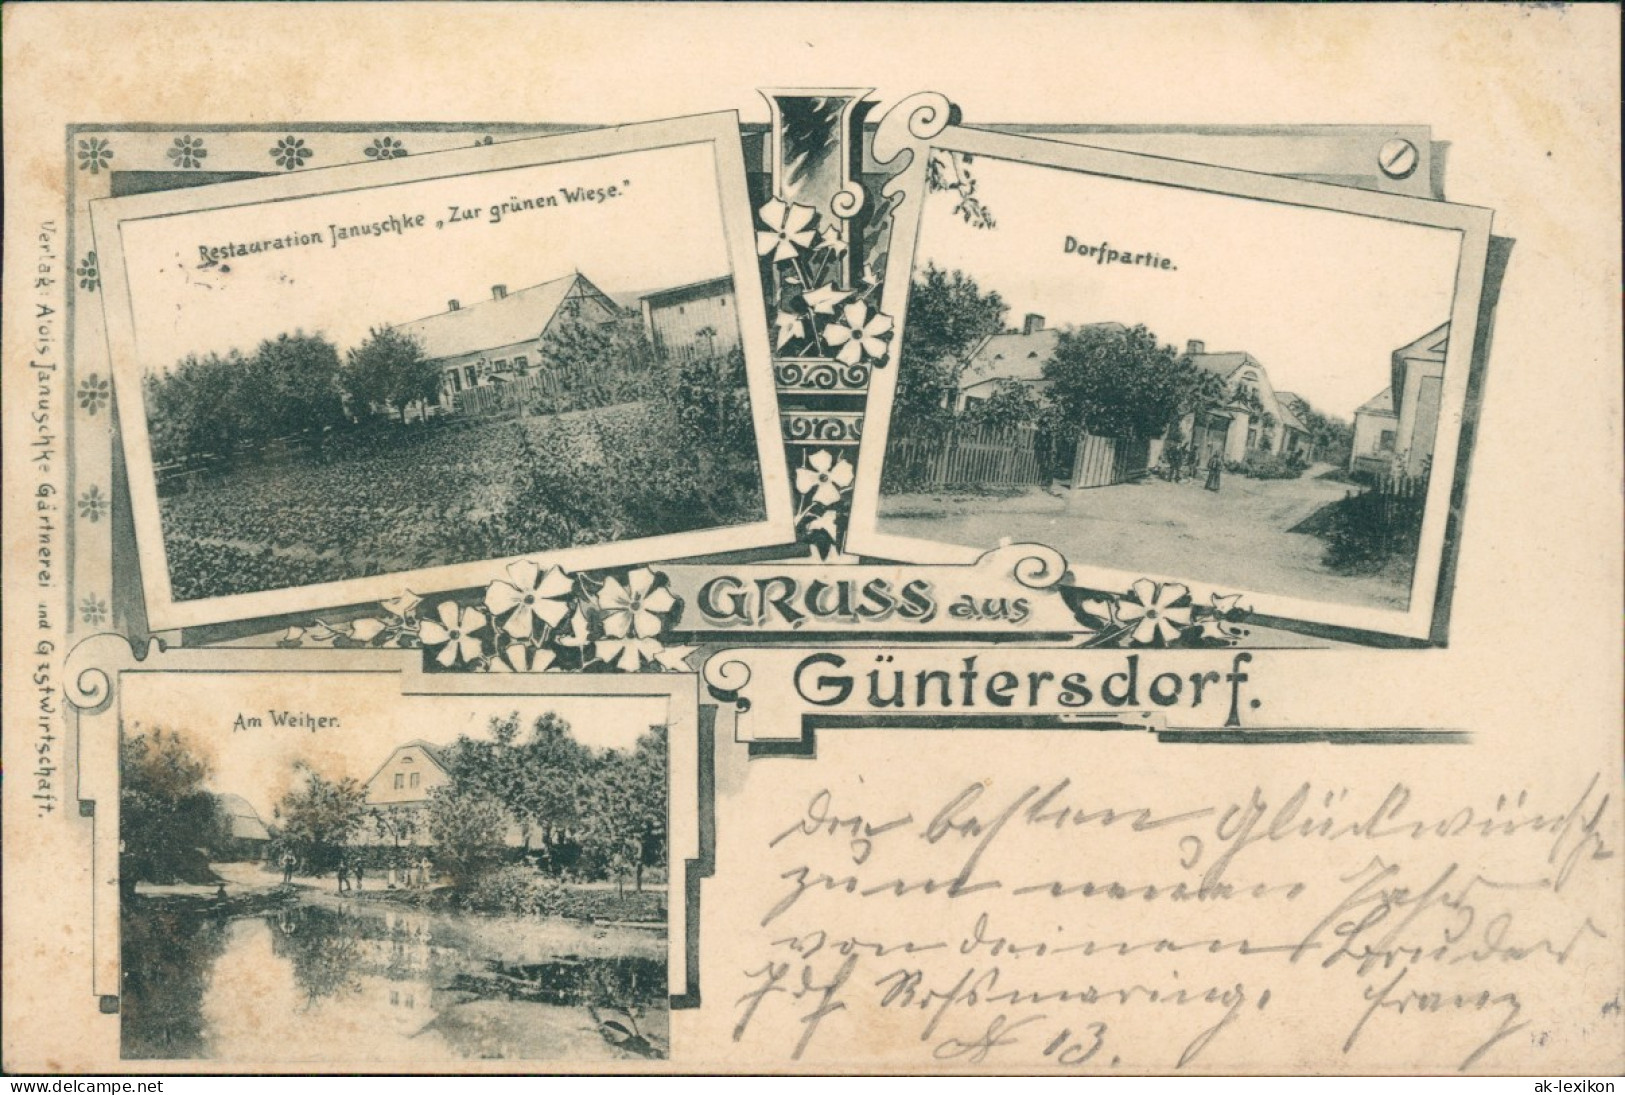 Restauration Januschke „Zur grünen Wiese."
Dorfpartie.
Verlag: Alois Januschke Gärtnerei und Gastwirtschaft.
GRUSS aus
Güntersdorf.
Am Weiher.
die besten Glückwünsche
zum neuen Jahr
von deinen Bruder
Franz
N 13.
www.delcampe.net
ak-lexikon